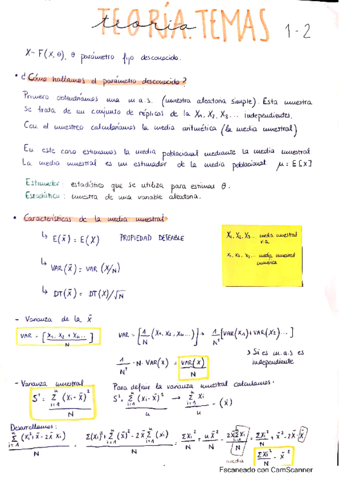 teoría TEORÍA.TEMAS 1-2
X~F(x, θ), θ parámetro fijo desconocido.
• ¿Cómo hallamos el parámetro desconocido?
Primero obtendríamos una m.a.s. (muestra aleatoria simple). Esta muestra
se trata de un conjunto de réplicas de la X1, X2, X3... independientes.
Con el muestreo calculamos la media aritmética (la media muestral)
En este caso estimamos la media poblacional mediante la media muestral
La media muestral es un estimador de la media poblacional μ: E[X]
Estimador: estadístico que se utiliza para estimar θ.
Estadístico: muestra de una variable aleatoria.
• Características de la media muestral:
↳ E(x̄) = E(X) PROPIEDAD DESEABLE
↳ VAR(x̄) = VAR(X/N)
↳ DT(x̄) = DT(X)/√N
X1, X2, X3... media muestral
v.a.
x1, x2, x3... media muestral
numérica
- Varianza de la x̄
VAR = [X1, X2 + X4... / N]
VAR = [1/N (X1, X2, X4...)] → 1/N² [VAR(X1) + VAR(X2)...]
1/N² · N · VAR(X) = VAR(X)/N
> Si es m.a.s es
independiente
- Varianza muestral
S² = Σ(xi - x̄)² / N
Para definir la varianza muestral calculamos:
Σ(xi - x̄)² / n → Σ xi / n - (x̄)
Desarrollamos:
Σ(xi² + x̄ - 2x̄ xi) / N = Σ(xi)² + Σ(x̄)² - 2x̄ Σ(xi) / N = Σxi² / N + nx̄² / N - 2x̄Σxi / N = Σxi² / N + x̄² - 2x̄ · x̄
Σxi² / N - x̄²
Escaneado con CamScanner